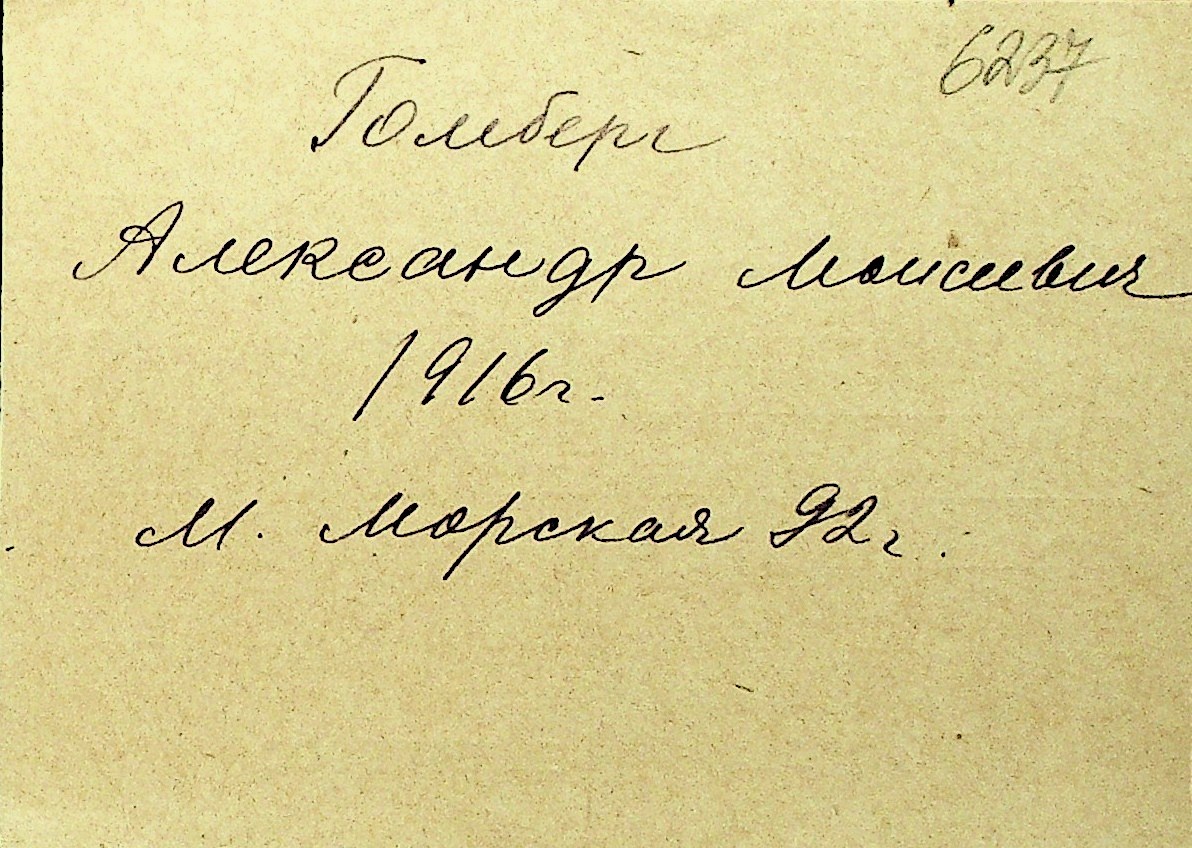 6237
Гомберг
Александр Моисеевич
1916г.
М. Морская 92г.